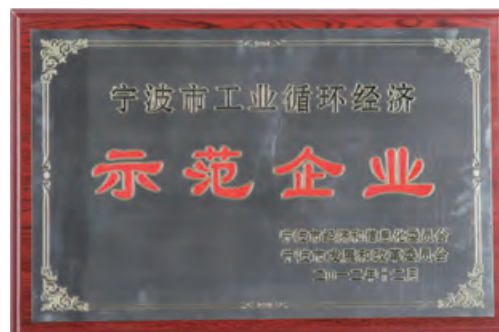 宁波市工业循环经济
示范企业
宁波市经济和信息化委员会
宁波市发展和改革委员会
二〇一二年十二月